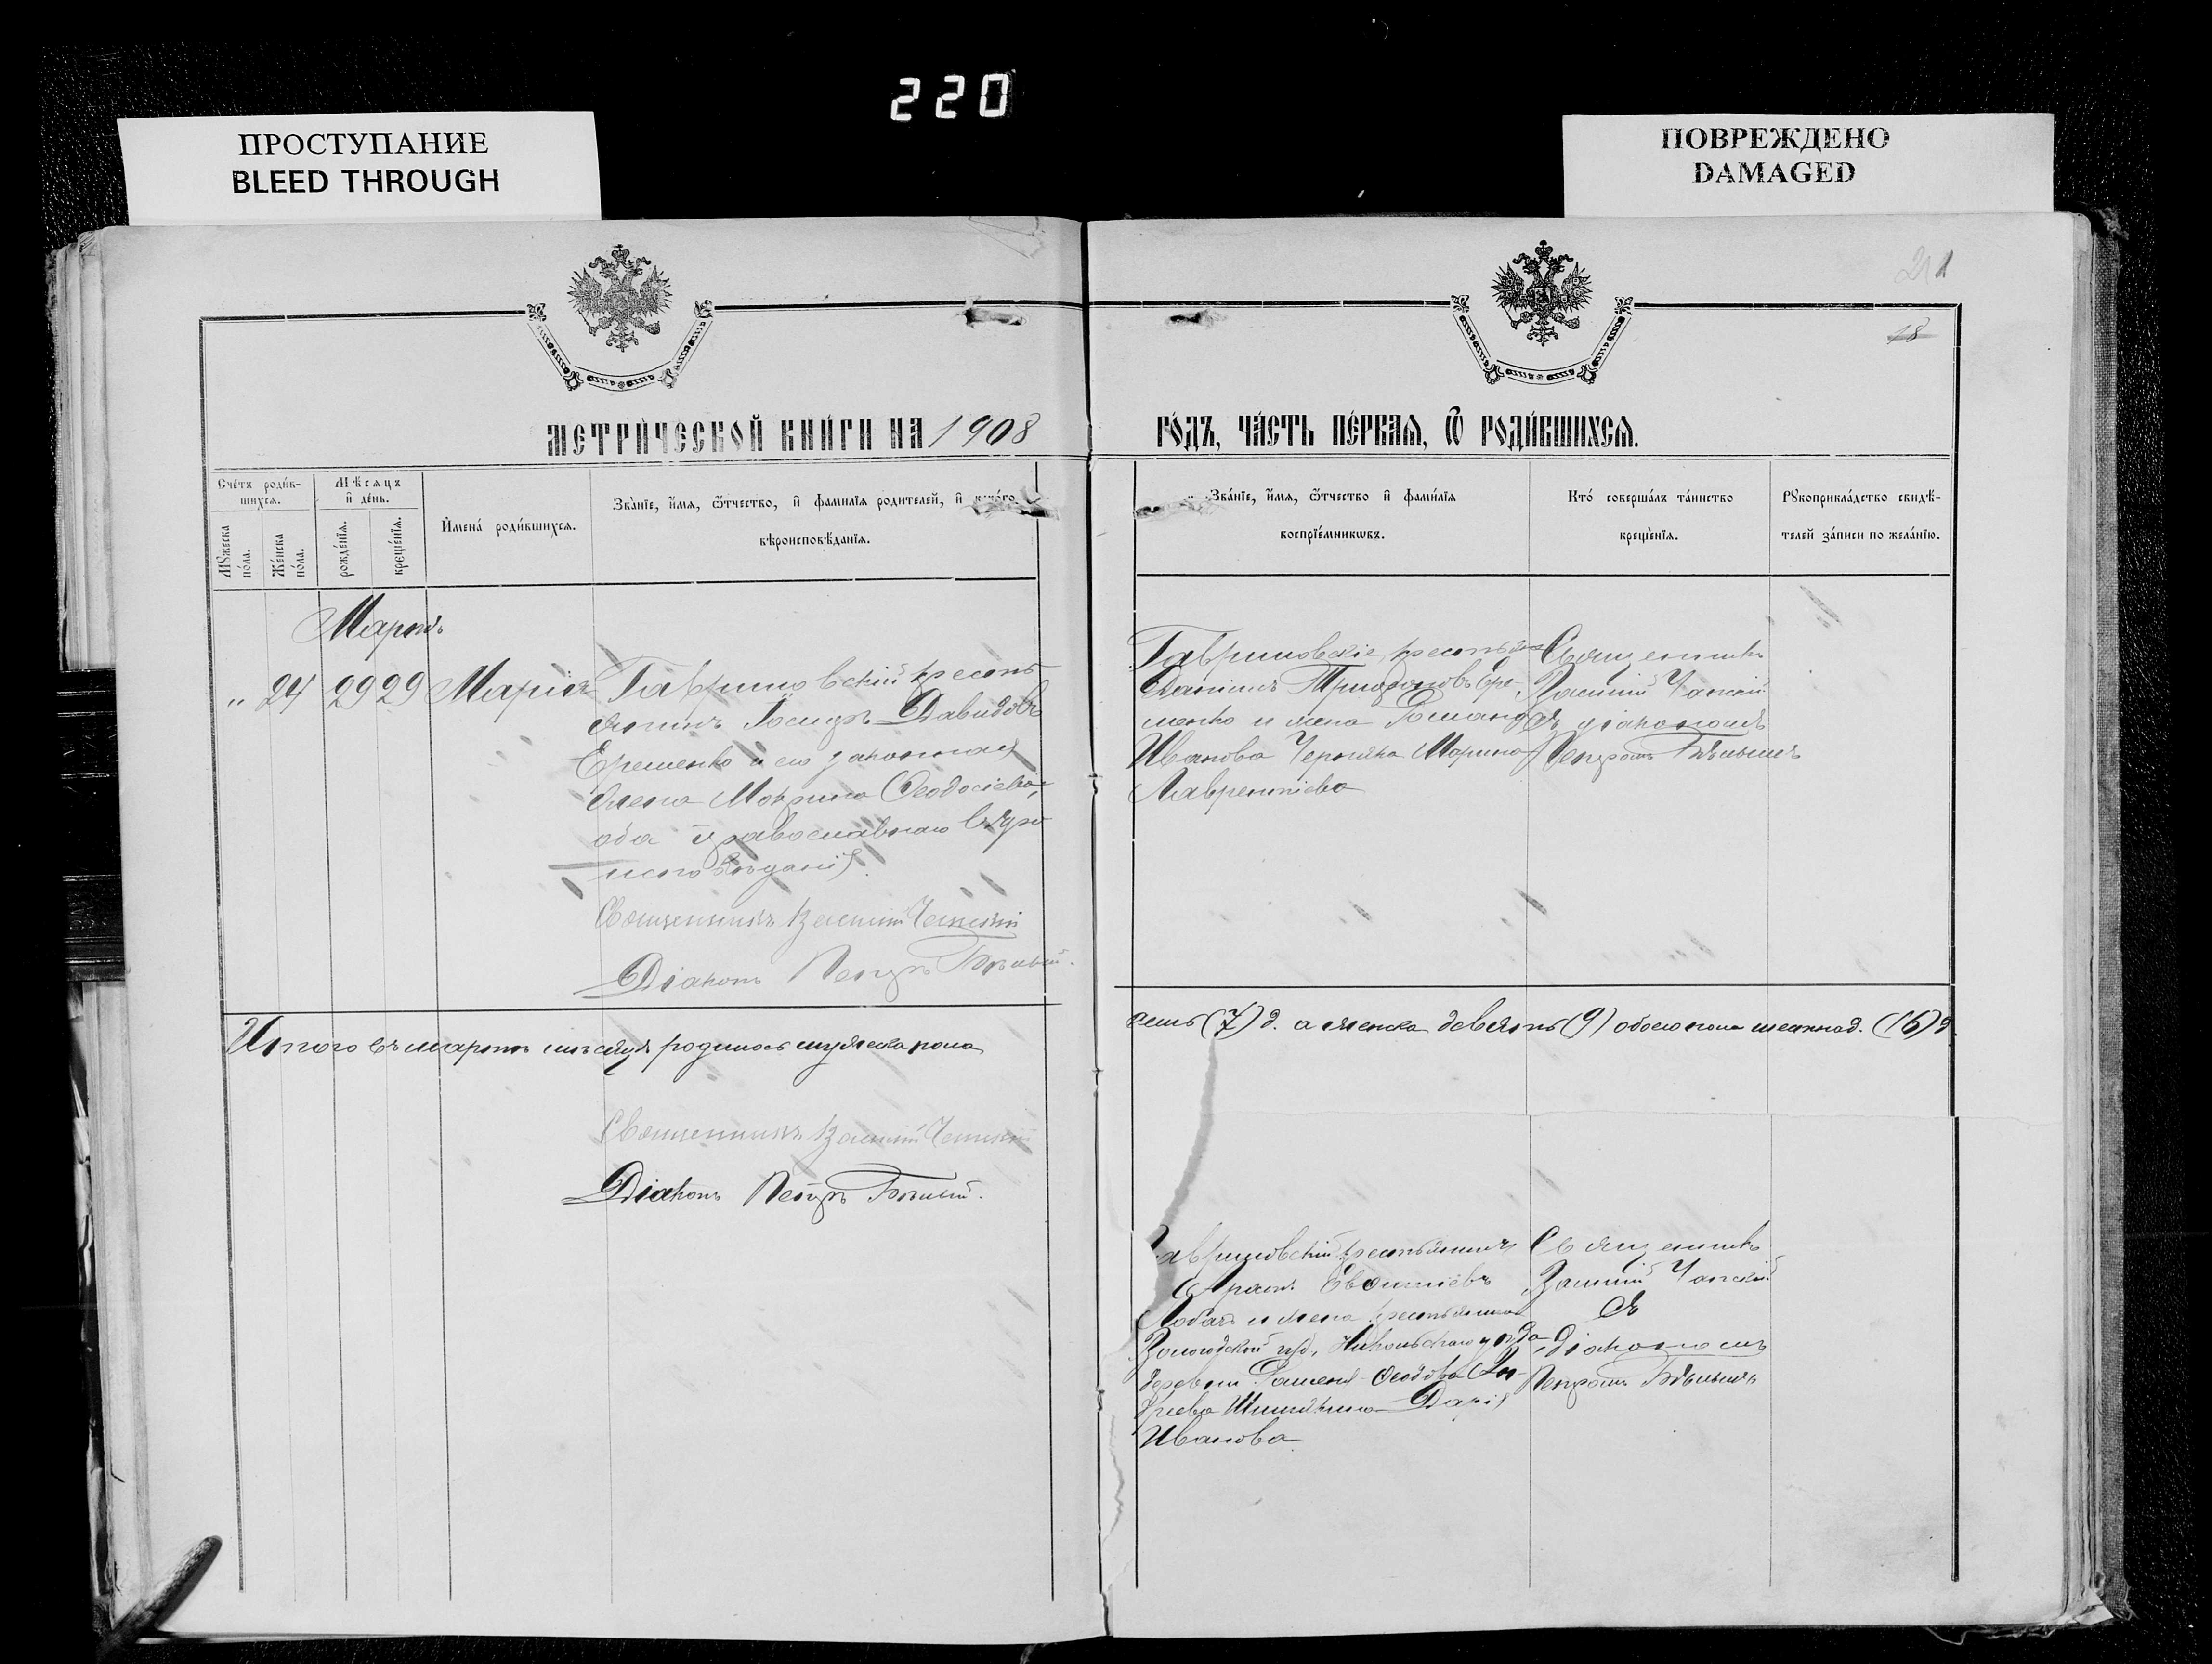 220
ПРОСТУПАНИЕ
BLEED THROUGH
ПОВРЕЖДЕНО
DAMAGED
211
18
МЕТРИ́ЧЕСКОЙ КНИ́ГИ НА 1908
ГО́ДЪ, ЧА́СТЬ ПЕ́РВАѦ, Ѿ РОДИ́ВШИХСѦ.
Сче́тъ роди́в-
шихсѧ.
Мѣсѧцъ
и҆ де́нь.
Мꙋ́жеска
по́ла.
Же́нска
по́ла.
рожде́нїѧ.
креще́нїѧ.
И҆мена̀ роди́вшихсѧ.
Зва́нїе, и҆́мѧ, ѻ҆́тчество, и҆ фами́лїѧ роди́телей, и҆
вѣроисповѣ́данїѧ.
Зва́нїе, и҆́мѧ, ѻ҆́тчество и҆ фами́лїѧ
воспрїе́мникѡвъ.
Кто́ соверша́лъ та́инство
креще́нїѧ.
Рꙋкоприкла́дство свидѣ́-
телей за́писи по жела́нїю.
Мартъ
" 24 29 29 Марія
Гавриловскій кресть
янинъ Давидовъ
Еременко и его законная
жена Макрина Ѳеодосіева,
оба православнаго вѣро
исповѣданія.
Священникъ Василій
Діаконъ Петръ Бѣлый.
Гавриловскіе крестьяне
Даніилъ Трифоновъ Ере-
менко и жена Романа
Иванова Черняка Марина
Лаврентіева
Священникъ
Василій
съ діакономъ
Петромъ Бѣлымъ
Итого въ мартѣ мѣсяцѣ родилось мужеска пола
семь (7) д. а женска девять (9) обоего пола шестнад. (16) д.
Священникъ Василій
Діаконъ Петръ Бѣлый.
Гавриловскій крестьянинъ
Лобачъ и жена крестьянина
Вологодской губ., Никольскаго уѣзда
деревни
Дарія
Иванова
Священникъ
Василій
съ
діакономъ
Петромъ Бѣлымъ